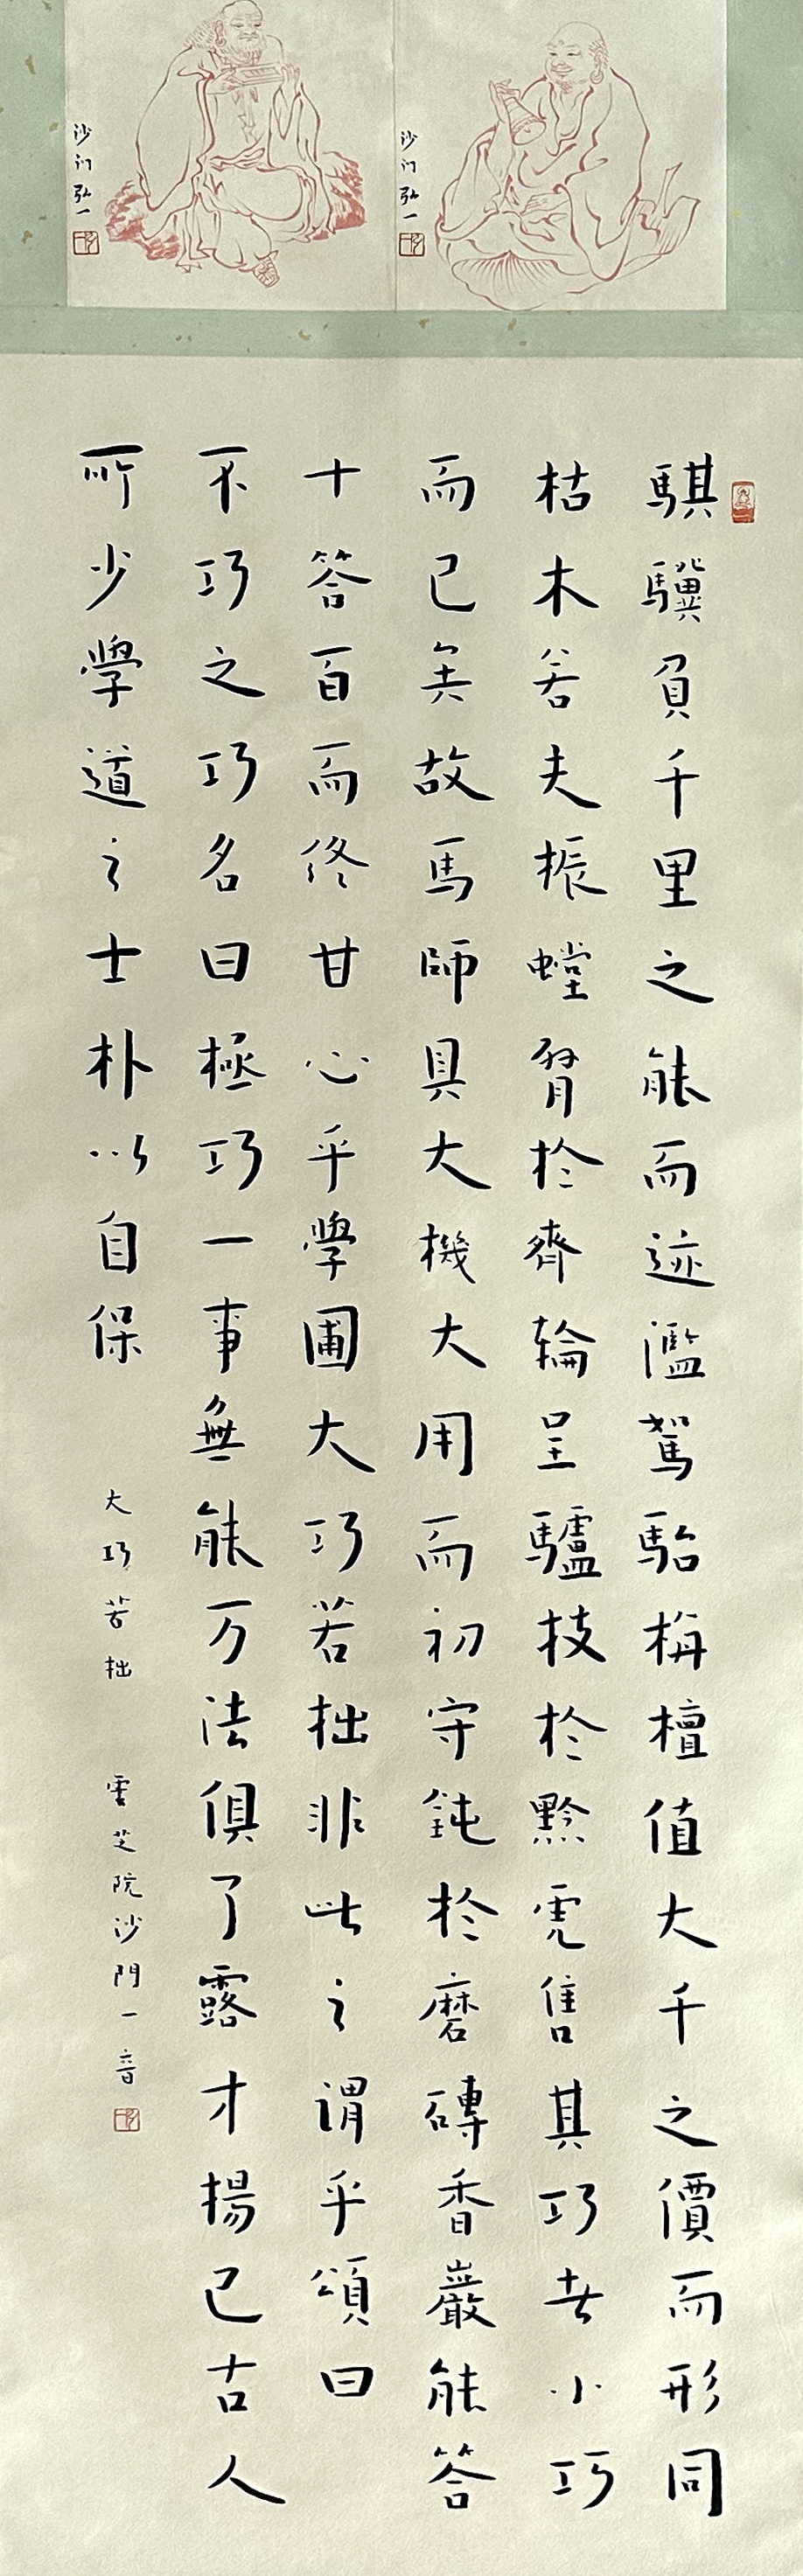 沙门弘一
沙门弘一
騏驥負千里之能而迹濫駕駘栴檀值大千之價而形同
枯木若夫振螳臂於齊輪呈驢技於黔虎售其巧者小巧
而已矣故馬師具大機大用而初守鈍於磨磚香巖能答
十答百而終甘心乎學圃大巧若拙非此之謂乎頌曰
不巧之巧名曰極巧一事無能万法俱了露才揚己古人
所少學道之士朴以自保
大巧若拙
雲芝院沙門一音